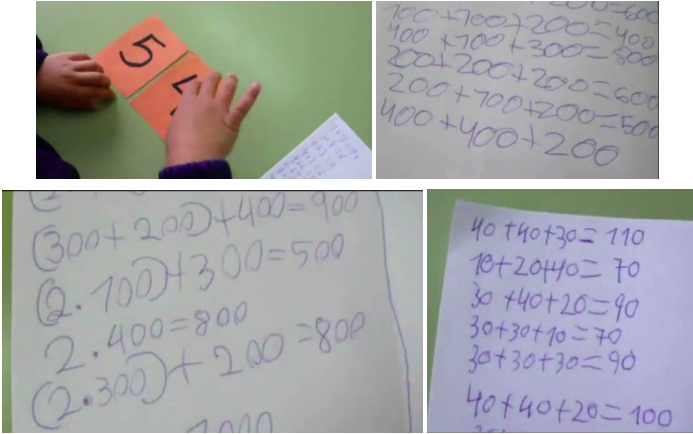 5
200=600
100+100+200=400
400+100+300=800
200+200+200=600
200+100+200=500
400+400+200
(300+200)+400=900
(2·100)+300=500
2·400=800
(2·300)+200=800
40+40+30=110
10+20+40=70
30+40+20=90
30+30+10=70
30+30+30=90
40+40+20=100